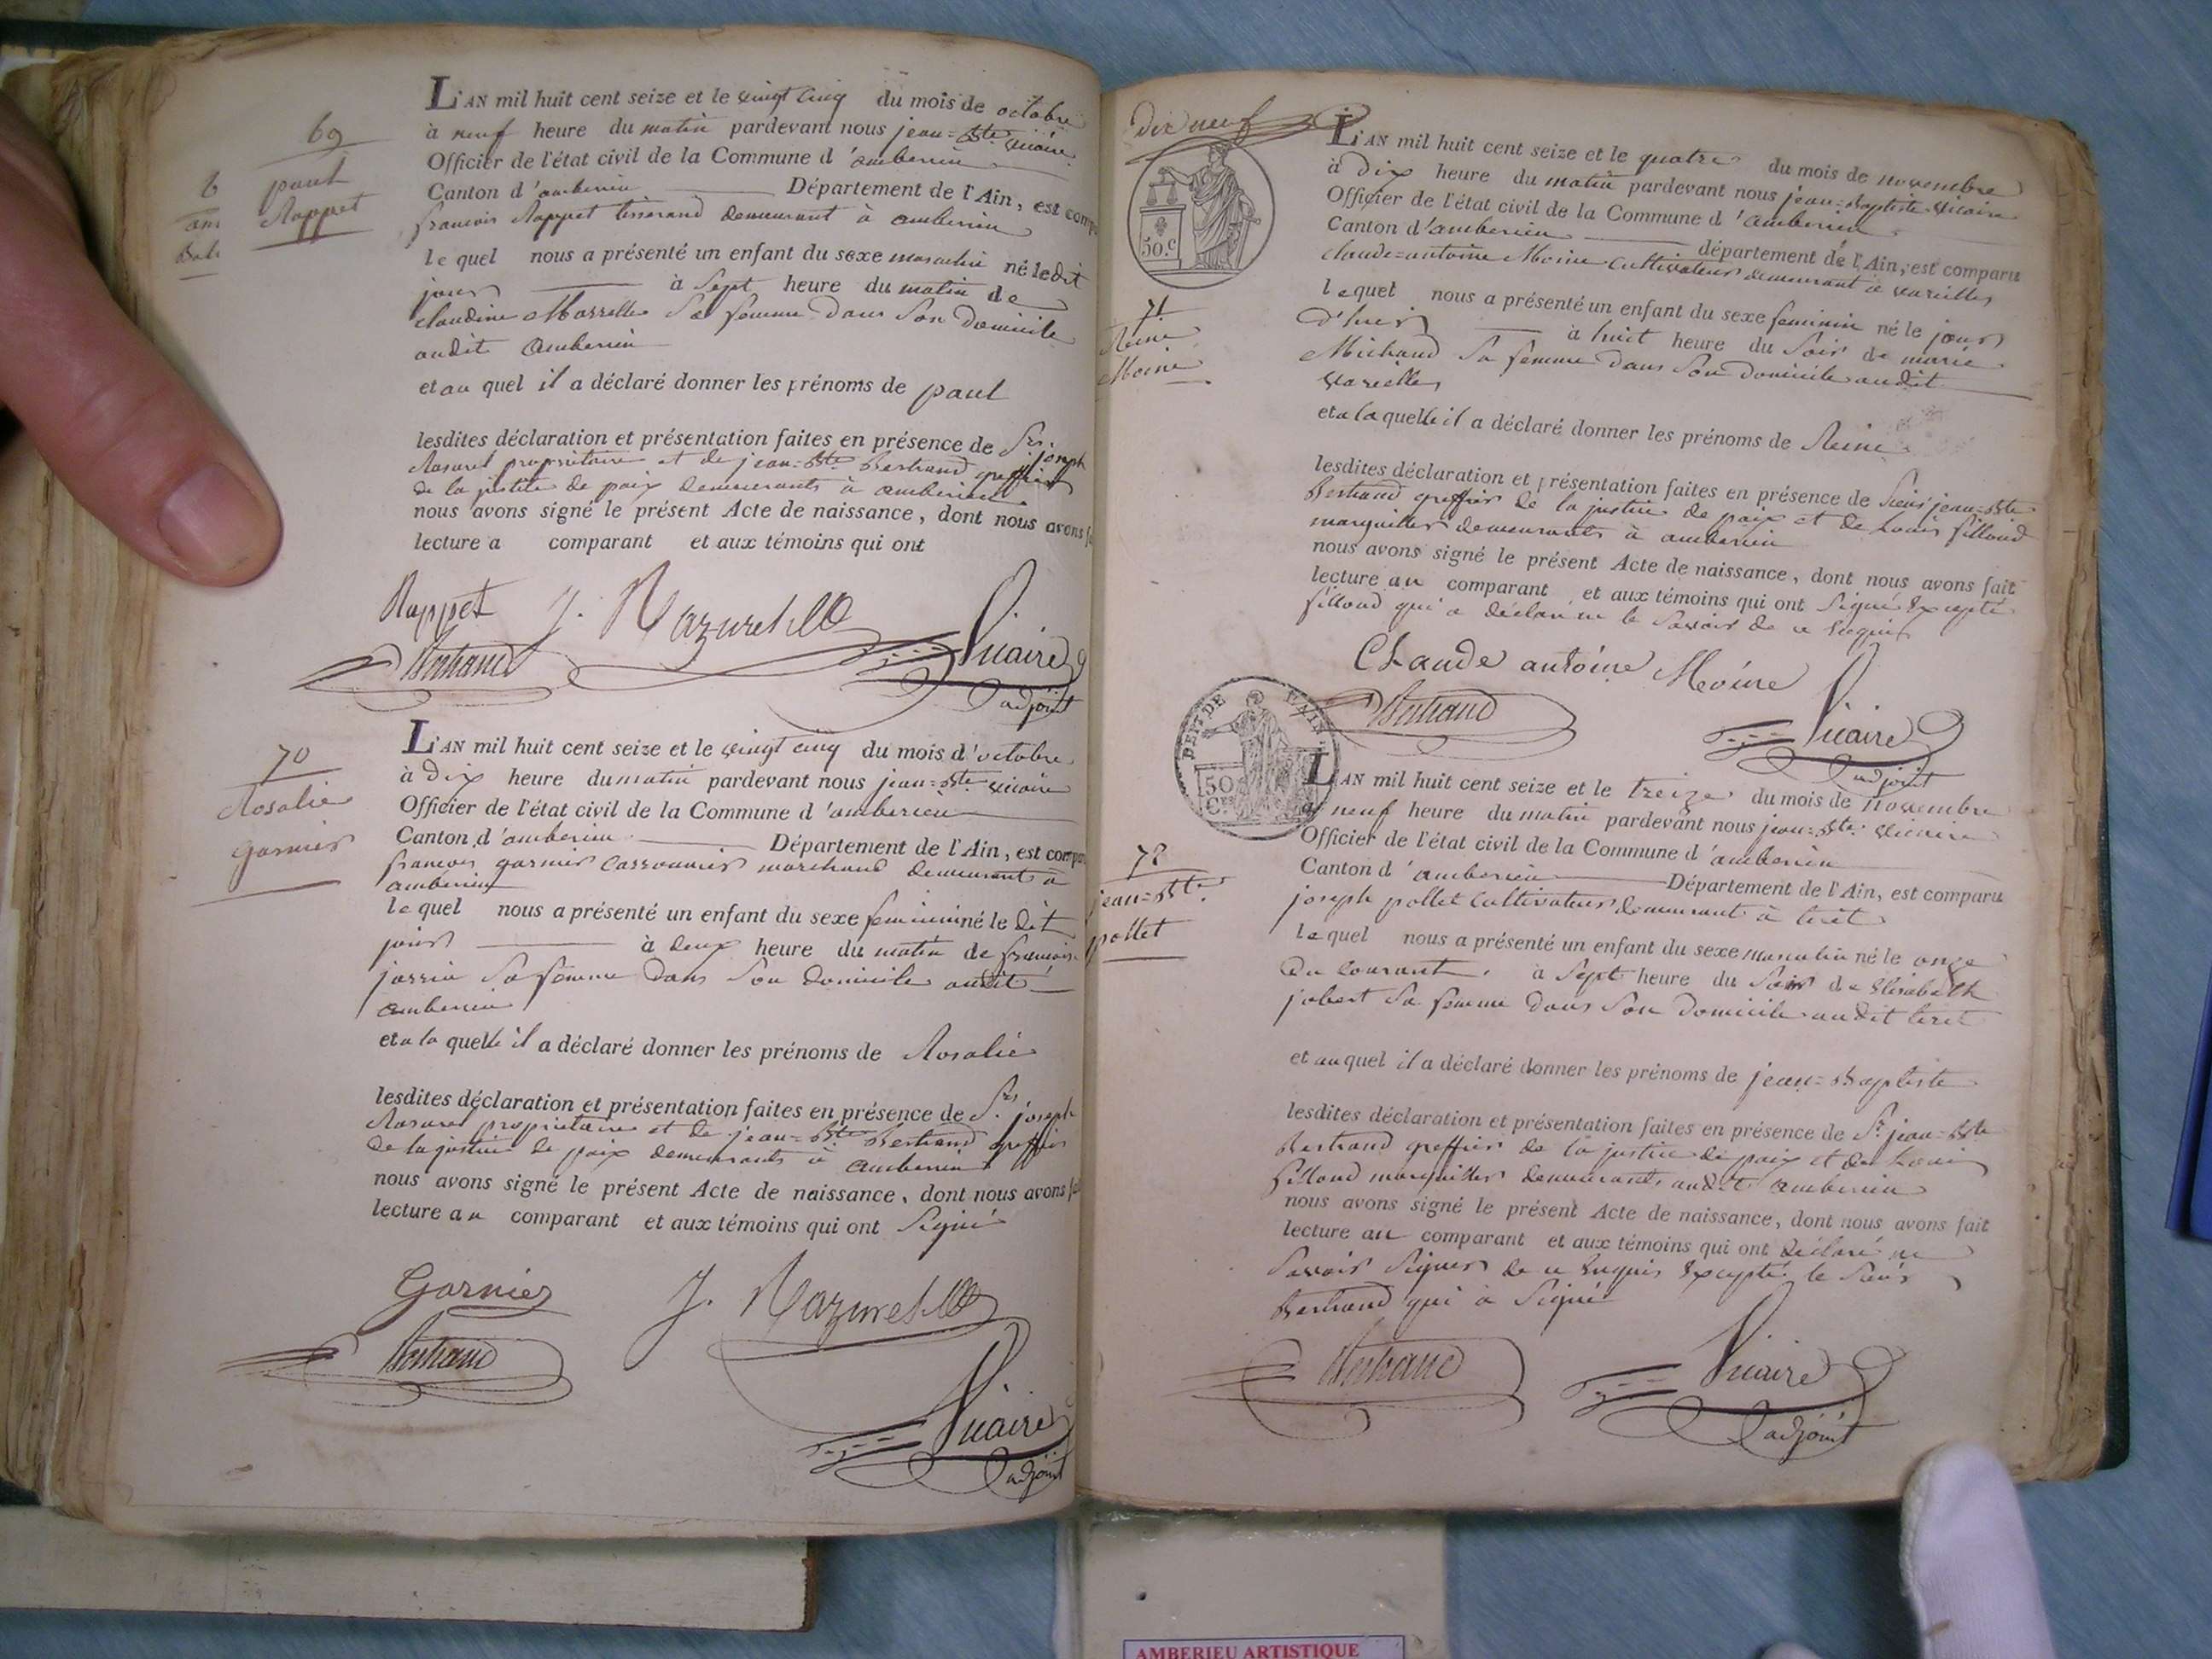 69
paul
Rappet
L'AN mil huit cent seize et le vingt cinq du mois de octobre
à neuf heure du matin pardevant nous jean=Bte vicaire
Officier de l'état civil de la Commune d'amberieu
Canton d'amberieu Département de l'Ain, est comp
francois Rappet tisserand demeurant à amberieu
lequel nous a présenté un enfant du sexe masculin né le dit
jour à Sept heure du matin de
claudine Sa femme dans Son domicile
audit Amberieu
et au quel il a déclaré donner les prénoms de paul
lesdites déclaration et présentation faites en présence de Srs joseph
Rasurel propriétaire et de jean=Bte Bertrand greffier
de la justice de paix demeurants à amberieu
nous avons signé le présent Acte de naissance, dont nous avons
lecture a comparant et aux témoins qui ont
Rappet J. Razurel
Bertrand Vicaire
adjoint
70
Rosalie
garnier
L'AN mil huit cent seize et le vingt cinq du mois d'octobre
à Dix heure du matin pardevant nous jean=Bte vicaire
Officier de l'état civil de la Commune d'amberieu
Canton d'amberieu Département de l'Ain, est compa
francois garnier marchand demeurant à
amberieu
lequel nous a présenté un enfant du sexe feminin né le dit
jour à deux heure du matin de francoise
jarrin Sa femme dans Son domicile audit
amberieu
et a la quelle il a déclaré donner les prénoms de Rosalie
lesdites déclaration et présentation faites en présence de Srs joseph
Rasurel propriétaire et de jean=Bte Bertrand greffier
de la justice de paix demeurants à amberieu
nous avons signé le présent Acte de naissance, dont nous avons
lecture au comparant et aux témoins qui ont Signé
Garnier J. Razurel
Bertrand
Vicaire
adjoint
dix neuf
50.c
71
Reine
Moine
L'AN mil huit cent seize et le quatre du mois de novembre
à Dix heure du matin pardevant nous jean=Baptiste vicaire
Officier de l'état civil de la Commune d'amberieu
Canton d'amberieu département de l'Ain, est comparu
claude=antoine Moine cultivateur demeurant à vareilles
lequel nous a présenté un enfant du sexe feminin né le jour
d'hier à huit heure du Soir de marie
Michaud Sa femme dans Son domicile audit
vareilles
et a la quelle il a déclaré donner les prénoms de Reine
lesdites déclaration et présentation faites en présence de Sieurs jean=Bte
Bertrand greffier de la justice de paix et de Louis filloud
marguiller demeurants à amberieu
nous avons signé le présent Acte de naissance, dont nous avons fait
lecture au comparant et aux témoins qui ont Signé Excepté
filloud qui a déclaré ne le Savoir de ce Enquis
Claude antoine Moine
Bertrand Vicaire
adjoint
DEPT DE L'AIN
50
Ces
72
jean=Bte
pollet
L'AN mil huit cent seize et le treize du mois de novembre
à neuf heure du matin pardevant nous jean=Bte vicaire
Officier de l'état civil de la Commune d'amberieu
Canton d'amberieu Département de l'Ain, est comparu
joseph pollet Cultivateur demeurant à tiret
lequel nous a présenté un enfant du sexe masculin né le onze
du Courant à Sept heure du Soir de Elisabeth
jobert Sa femme dans Son domicile audit tiret
et au quel il a déclaré donner les prénoms de jean=Baptiste
lesdites déclaration et présentation faites en présence de Sr jean=Bte
Bertrand greffier de la justice de paix et de Louis
filloud marguiller demeurants audit amberieu
nous avons signé le présent Acte de naissance, dont nous avons fait
lecture au comparant et aux témoins qui ont déclaré ne
Savoir Signer de ce Enquis Excepté le Sieur
Bertrand qui a Signé
Bertrand Vicaire
adjoint
AMBERIEU ARTISTIQUE